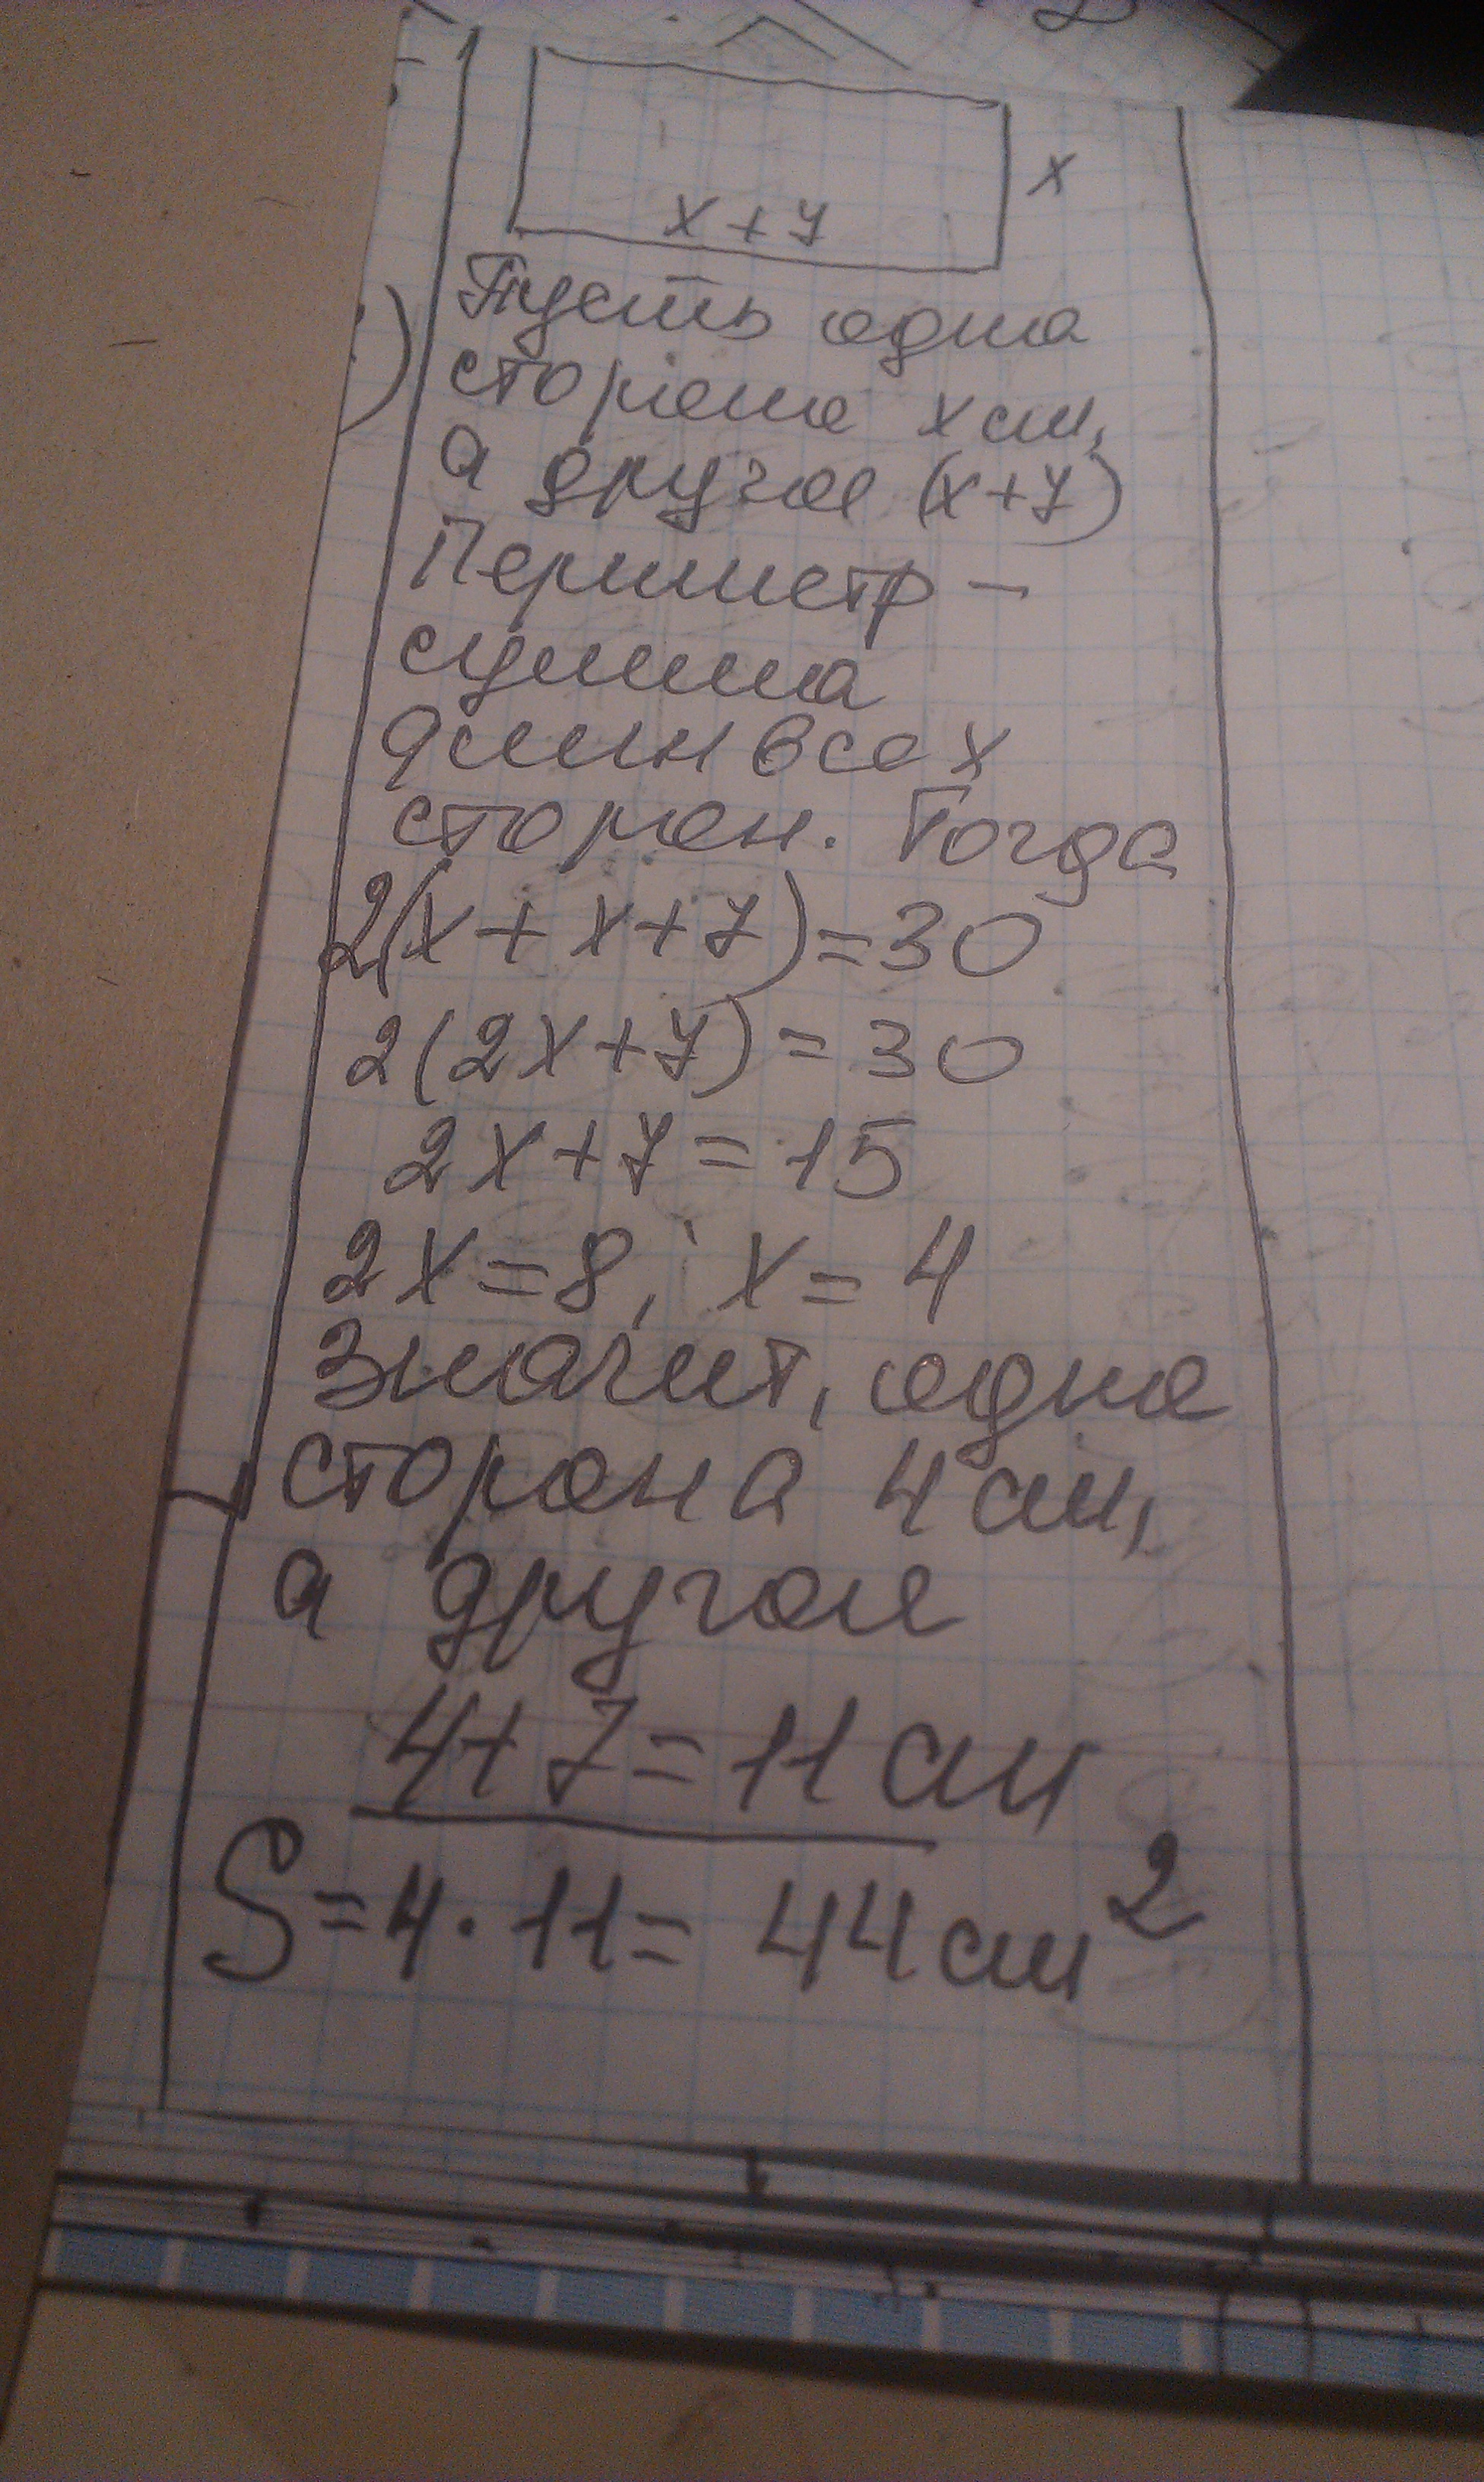 x
x+7
Пусть одна
сторона x см,
а другая (x+7)
Периметр –
сумма
длин всех
сторон. Тогда
2(x+x+7)=30
2(2x+7)=30
2x+7=15
2x=8; x=4
Значит, одна
сторона 4 см,
а другая
4+7=11 см
S=4·11=44 см²